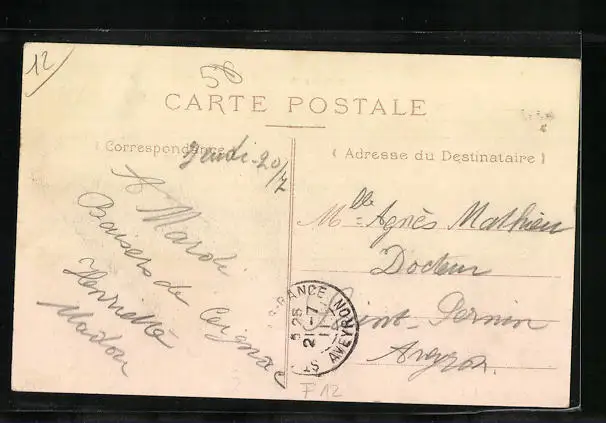 12
50
CARTE POSTALE
( Correspondance
( Adresse du Destinataire )
Jeudi 20/7
A Mardi
Baisers de
Henriette
Mlle Agnès Mathieu
Docteur
Saint-Sernin
Aveyron.
FRANCE
5 25
21-7
AVEYRON
F 12